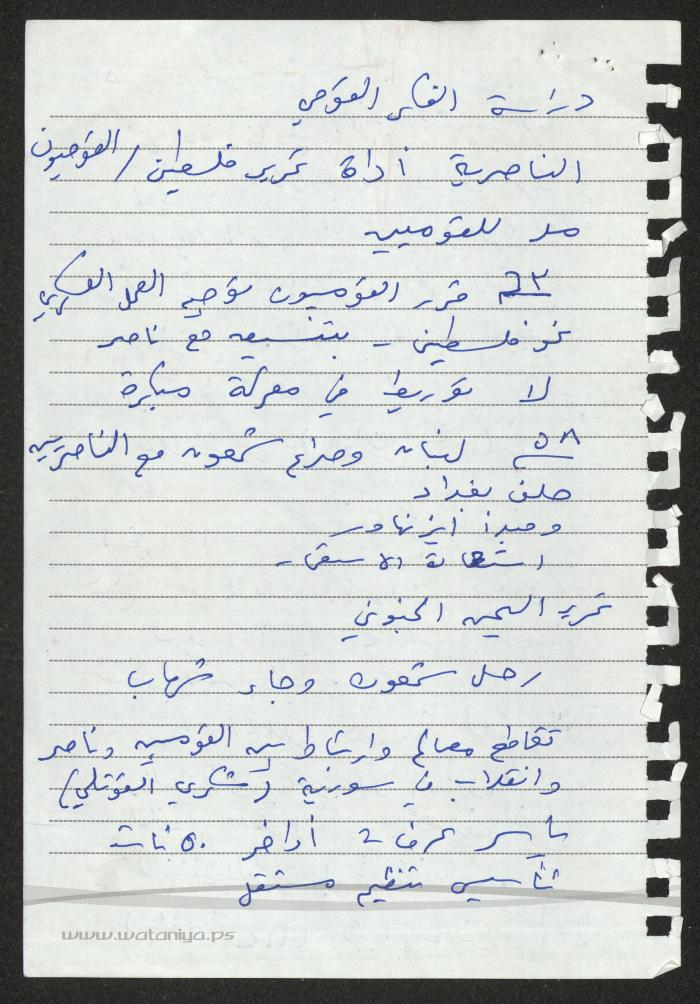 دراسة الفكر القومي
الناصرية أداة تحرير فلسطين / القوميون
مد للقوميين
٦٣ قرر القوميون توجيه العمل العسكري
نحو فلسطين - بتنسيق مع ناصر
لا توريط في معركة مبكرة
٥٨ لبنان وصراع شمعون مع الناصريين
حلف بغداد
ومبدأ ايزنهاور
تحرير اليمن الجنوبي
رحل شمعون وجاء شهاب
تقاطع مصالح وارتباط بين القوميين وناصر
وانقلاب في سورية (شكري القوتلي)
ياسر عرفات أواخر ٥٠ نات
تأسيس تنظيم مستقل
www.wataniya.ps